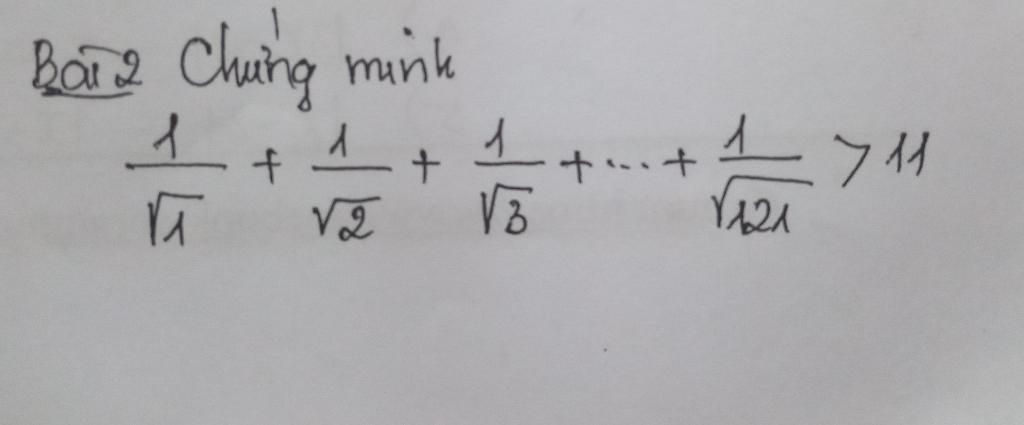 Bài 2 Chứng minh
1/√1 + 1/√2 + 1/√3 + ... + 1/√121 > 11